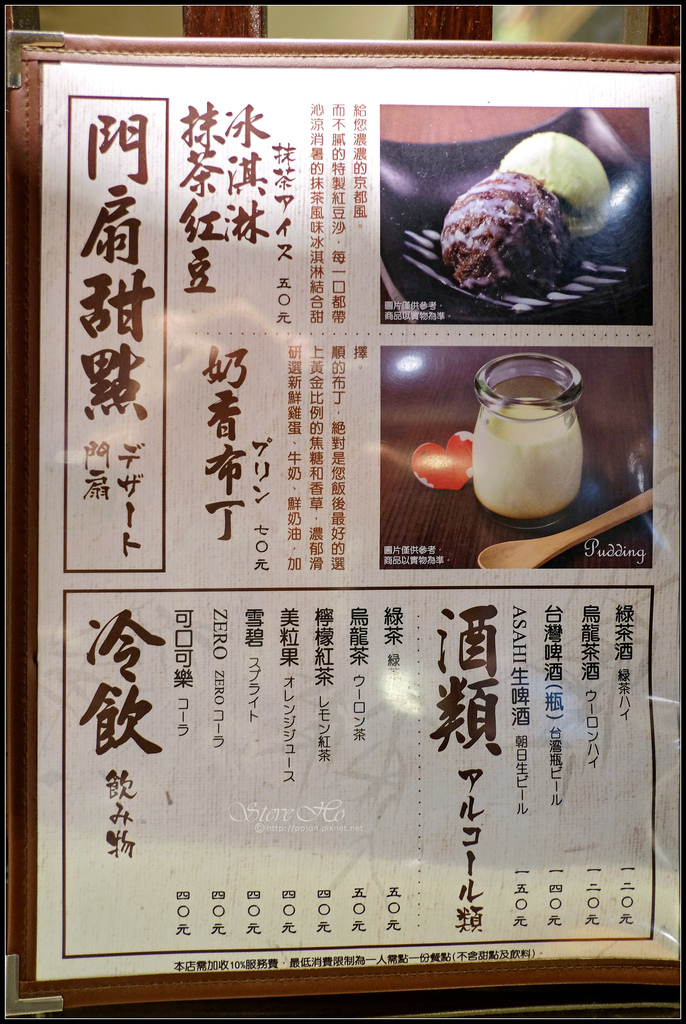 給您濃濃的京都風。
而不膩的特製紅豆沙，每一口都帶
沁涼消暑的抹茶風味冰淇淋結合甜
抹茶アイス 五〇元
冰淇淋
抹茶紅豆
門扇甜點
デザート
門扇
圖片僅供參考，
商品以實物為準。
擇。
順的布丁，絕對是您飯後最好的選
上黃金比例的焦糖和香草，濃郁滑
研選新鮮雞蛋、牛奶、鮮奶油，加
プリン 七〇元
奶香布丁
圖片僅供參考，
商品以實物為準。
Pudding
綠茶酒 綠茶ハイ 一二〇元
烏龍茶酒 ウーロンハイ 一二〇元
台灣啤酒(瓶) 台湾瓶ビール 一四〇元
ASAHI生啤酒 朝日生ビール 一五〇元
酒類 アルコール類
綠茶 綠茶 五〇元
烏龍茶 ウーロン茶 五〇元
檸檬紅茶 レモン紅茶 四〇元
美粒果 オレンジジュース 四〇元
雪碧 スプライト 四〇元
ZERO ZEROコーラ 四〇元
可口可樂 コーラ 四〇元
冷飲 飲み物
Steve Ho
©http://pojun.pixnet.net
本店需加收10%服務費，最低消費限制為一人需點一份餐點(不含甜點及飲料)。